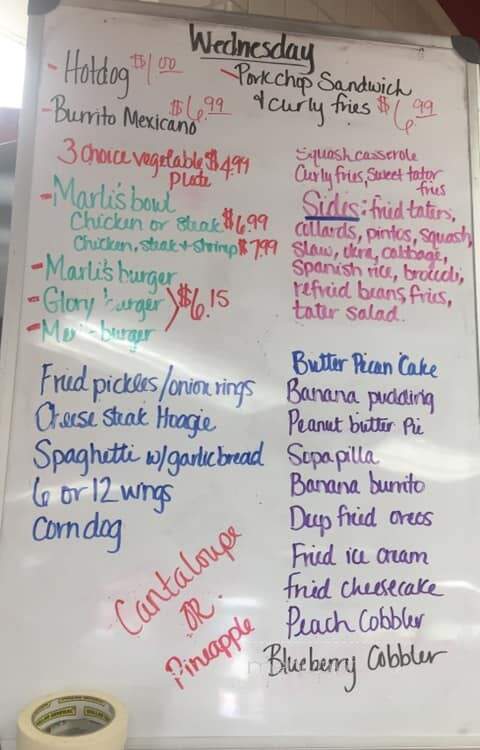 Wednesday
- Hotdog $1.00
- Burrito Mexicano $6.99
- Porkchop Sandwich
& curly fries $6.99
3 choice vegetable $4.99
plate
- Marli's bowl
Chicken or steak $6.99
Chicken, steak + shrimp $7.99
- Marli's burger
- Glory burger $6.15
- burger
Squash casserole
Curly fries, Sweet tator
fries
Sides: fried taters,
collards, pintos, squash,
slaw, okra, cabbage,
Spanish rice, brocoli,
refried beans, fries,
tater salad.
Fried pickles/onion rings
Cheese steak Hoagie
Spaghetti w/garlic bread
6 or 12 wings
Corndog
Cantaloupe
OR
Pineapple
Butter Pecan Cake
Banana pudding
Peanut butter Pie
Sopapilla
Banana burrito
Deep fried oreos
Fried ice cream
Fried cheesecake
Peach Cobbler
Blueberry Cobbler